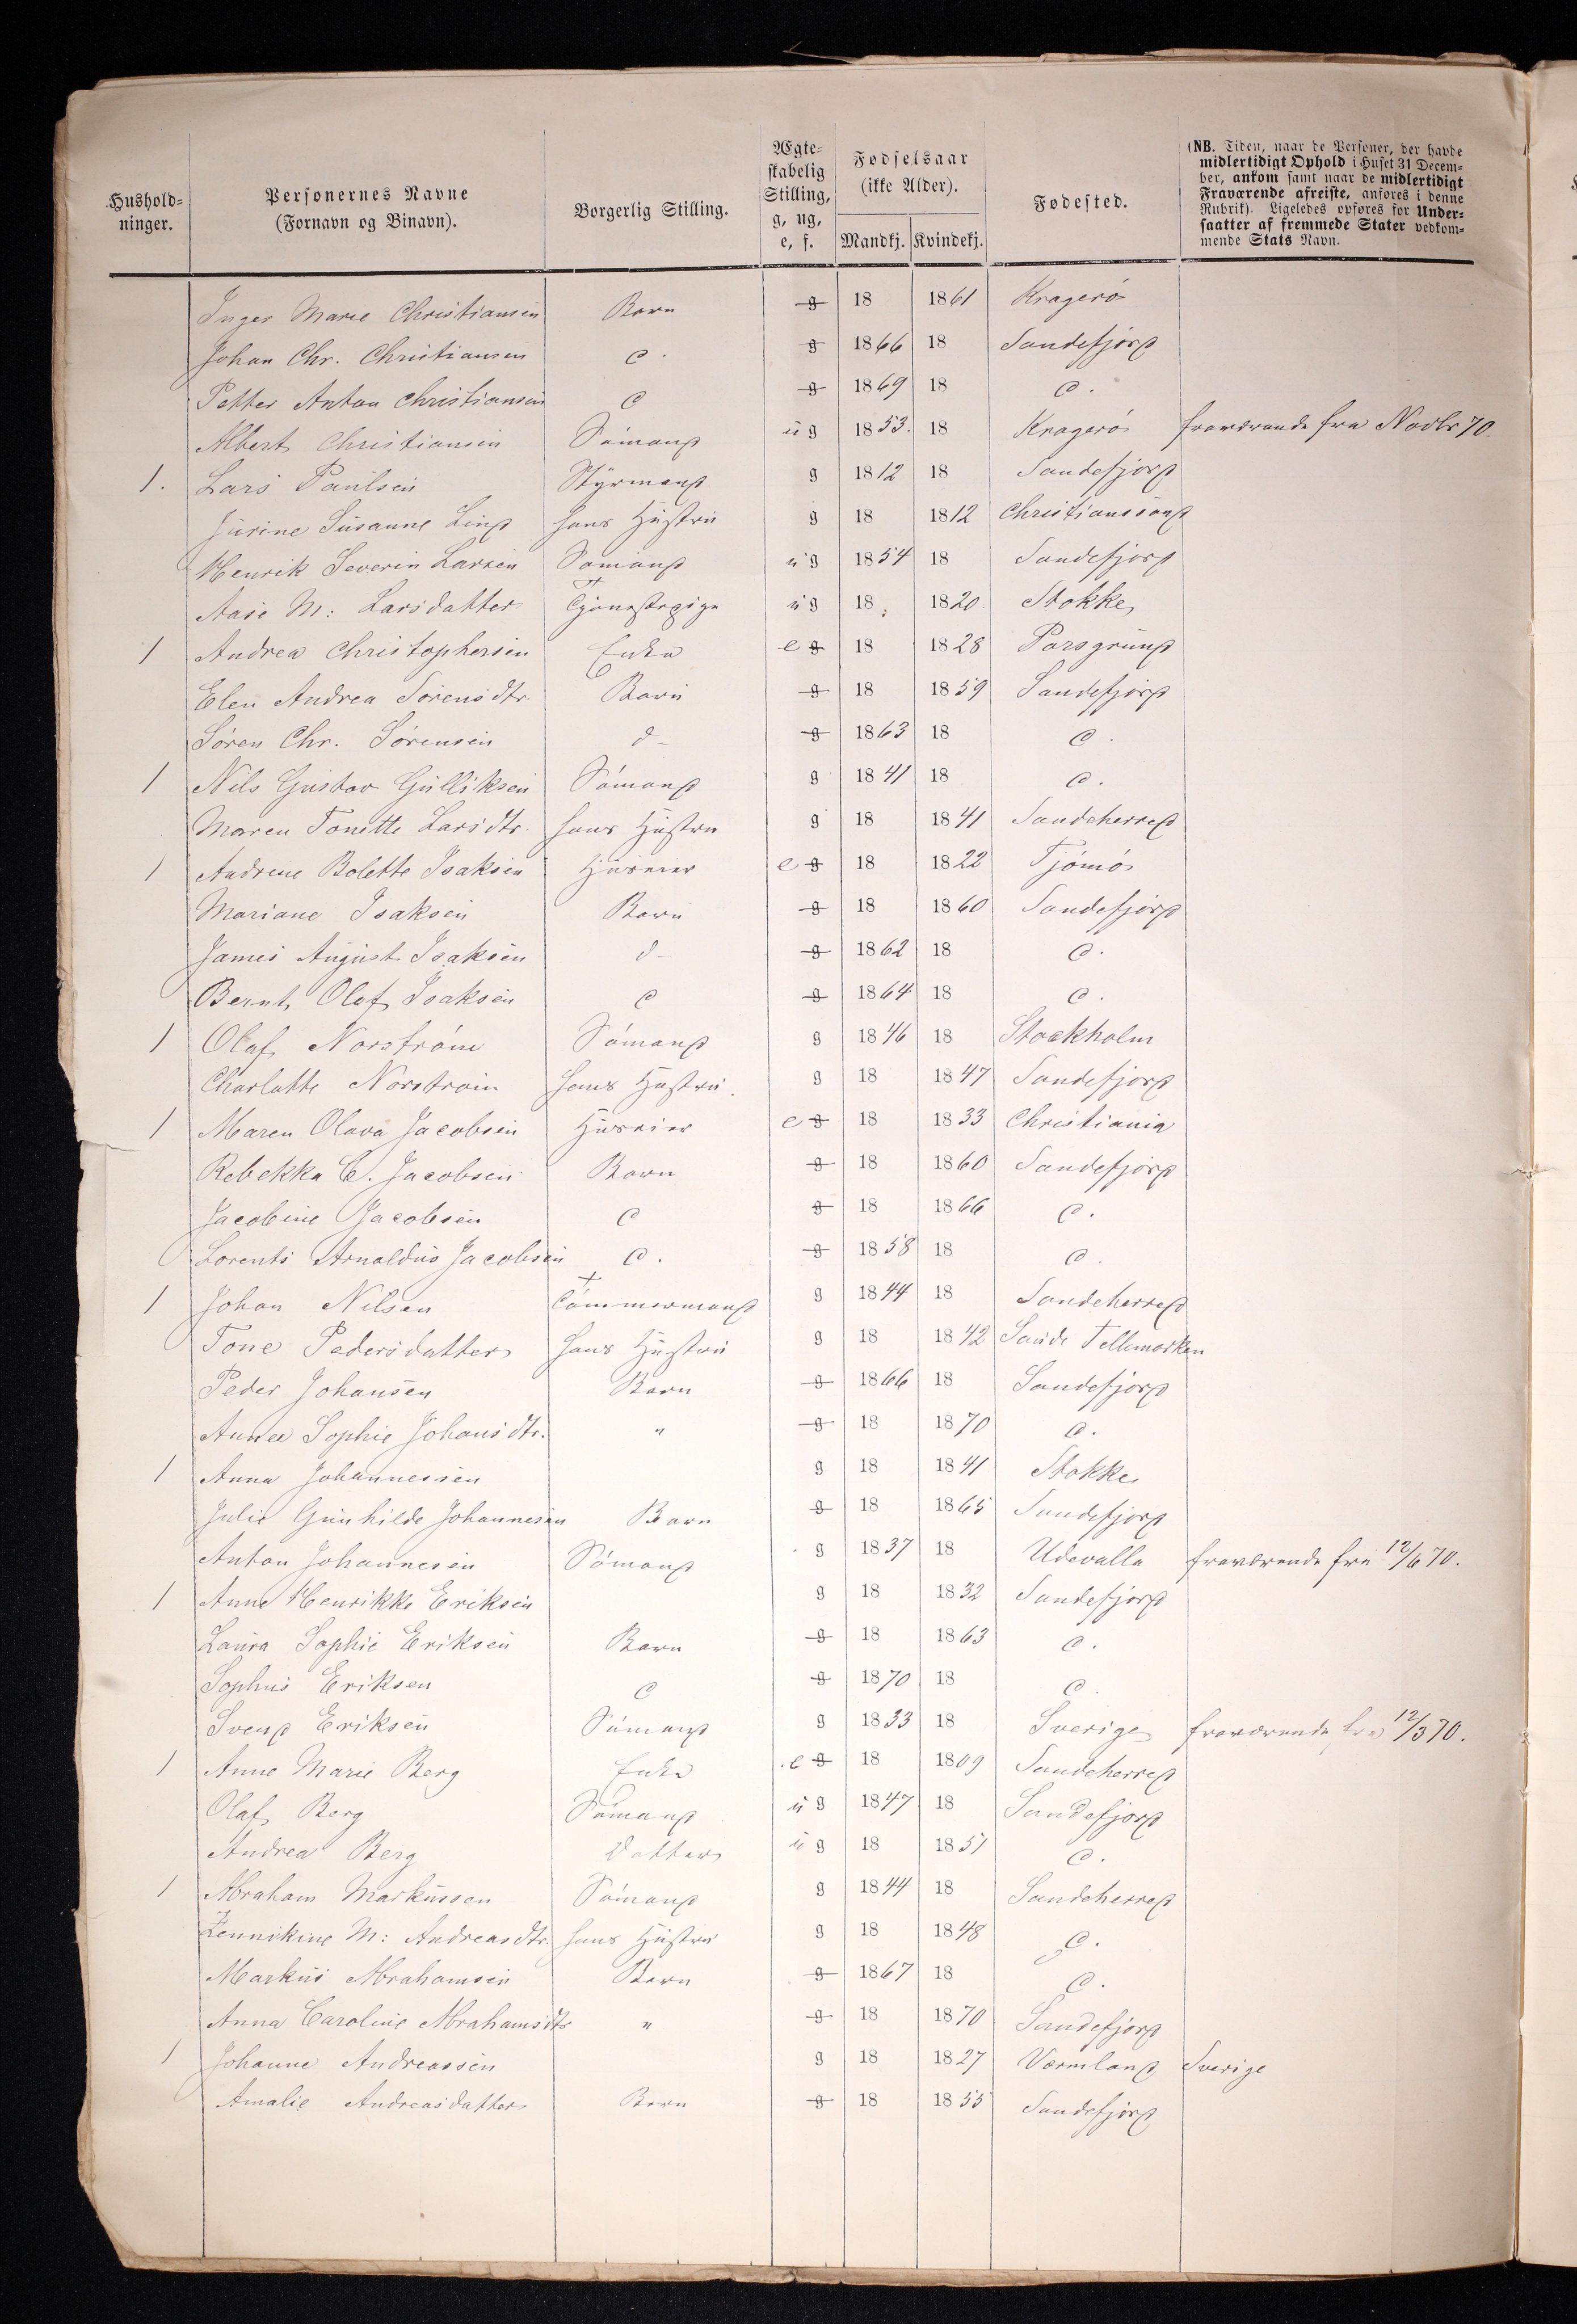 Hushold-
ninger.
Personernes Navne
(Fornavn og Binavn).
Borgerlig Stilling.
Ægte-
skabelig
Stilling,
g, ug,
e, f.
Fødselsaar
(ikke Alder).
Mandkj. Kvindekj.
Fødested.
(NB. Tiden, naar de Personer, der havde
midlertidigt Ophold i Huset 31 Decem-
ber, ankom samt naar de midlertidigt
Fraværende afreiste, anføres i denne
Rubrik). Ligeledes opføres for Under-
saatter af fremmede Stater vedkom-
mende Stats Navn.
Inger Marie Christiansen Barn g 18 1861 Kragerø
Johan Chr. Christiansen d. g 1866 18 Sandefjord
Petter Anton Christiansen d g 1869 18 d.
Albert Christiansen Sømand ug 1853. 18 Kragerø fraværende fra Novbr 70.
1. Lars Paulsen Styrmand g 1812 18 Sandefjord
Jurine Susanne Lind hans Hustru g 18 1812 Christianssand
Henrik Severin Larsen Sømand ug 1854 18 Sandefjord
Aase M: Larsdatter Tjenestepige ug 18 1820 Stokke
1 Andrea Christophersen Enke e g 18 1828 Porsgrund
Elen Andrea Sørensdtr. Barn g 18 1859 Sandefjord
Søren Chr. Sørensen d- g 1863 18 d.
1 Nils Gustav Gulliksen Sømand g 1841 18 d.
Maren Tonette Larsdtr. hans Hustru g 18 1841 Sandeherred
1 Andrene Bolette Isaksen Huseier e g 18 1822 Tjømø
Mariane Isaksen Barn g 18 1860 Sandefjord
James August Isaksen d- g 1862 18 d.
Bernt Olaf Isaksen d g 1864 18 d.
1 Olaf Norstrøm Sømand g 1846 18 Stockholm
Charlotte Norstrøm hans Hustru. g 18 1847 Sandefjord
1 Maren Olava Jacobsen Huseier e g 18 1833 Christiania
Rebekka C. Jacobsen Barn g 18 1860 Sandefjord
Jacobine Jacobsen d g 18 1866 d.
Lorents Arnoldus Jacobsen d. g 1858 18 d.
1 Johan Nilsen Tømmermand g 1844 18 Sandeherred
Tone Pedersdatter hans Hustru g 18 1842 Saude Tellemarken
Peder Johansen Barn g 1866 18 Sandefjord
Anne Sophie Johansdtr. " g 18 1870 d.
1 Anna Johannessen g 18 1841 Stokke
Julie Gunhilde Johannesen Barn g 18 1865 Sandefjord
Anton Johannesen Sømand g 1837 18 Udevalla fraværende fra 12/6 70.
1 Anne Henrikke Eriksen g 18 1832 Sandefjord
Laura Sophie Eriksen Barn g 18 1863 d.
Sophus Eriksen d g 1870 18 d.
Svend Eriksen Sømand g 1833 18 Sverige fraværende fra 12/3 70.
1 Anne Marie Berg Enke e g 18 1809 Sandeherred
Olaf Berg Sømand u g 1847 18 Sandefjord
Andrea Berg Datter u g 18 1851 d.
1 Abraham Markussen Sømand g 1844 18 Sandeherred
Lennikine M: Andreasdtr. hans Hustru g 18 1848 d.
Markus Abrahamsen Barn g 1867 18 d.
Anna Caroline Abrahamsdtr " g 18 1870 Sandefjord
1 Johanne Andreassen g 18 1827 Værmland Sverige
Amalie Andreasdatter Barn g 18 1855 Sandefjord